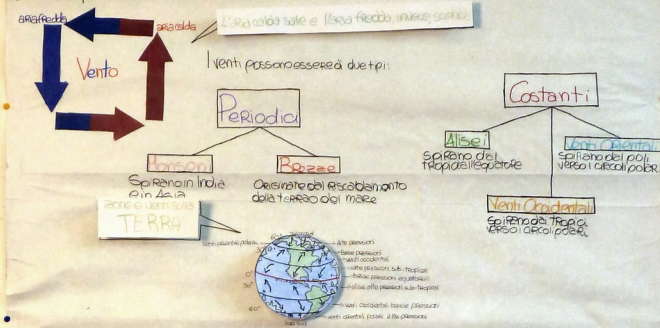 aria fredda
aria calda
Vento
L'aria calda sale e l'aria fredda, invece, scende
I venti possono essere di due tipi:
Periodici
Monsoni
Spirano in India
e in Asia
Brezze
Originate dal riscaldamento
della terra o del mare
Costanti
Alisei
Spirano dai
tropici all'equatore
Venti Orientali
Spirano dai poli
verso i circoli polari
Venti Occidentali
Spirano dai tropici
verso i circoli polari
TERRA
venti orientali polari
60°
30°
0°
30°
60°
Alte pressioni
basse pressioni
venti occidentali
alte pressioni sub-tropicali
basse pressioni equatoriali
alisei alte pressioni sub-tropicali
venti occidentali basse pressioni
venti orientali polari alte pressioni